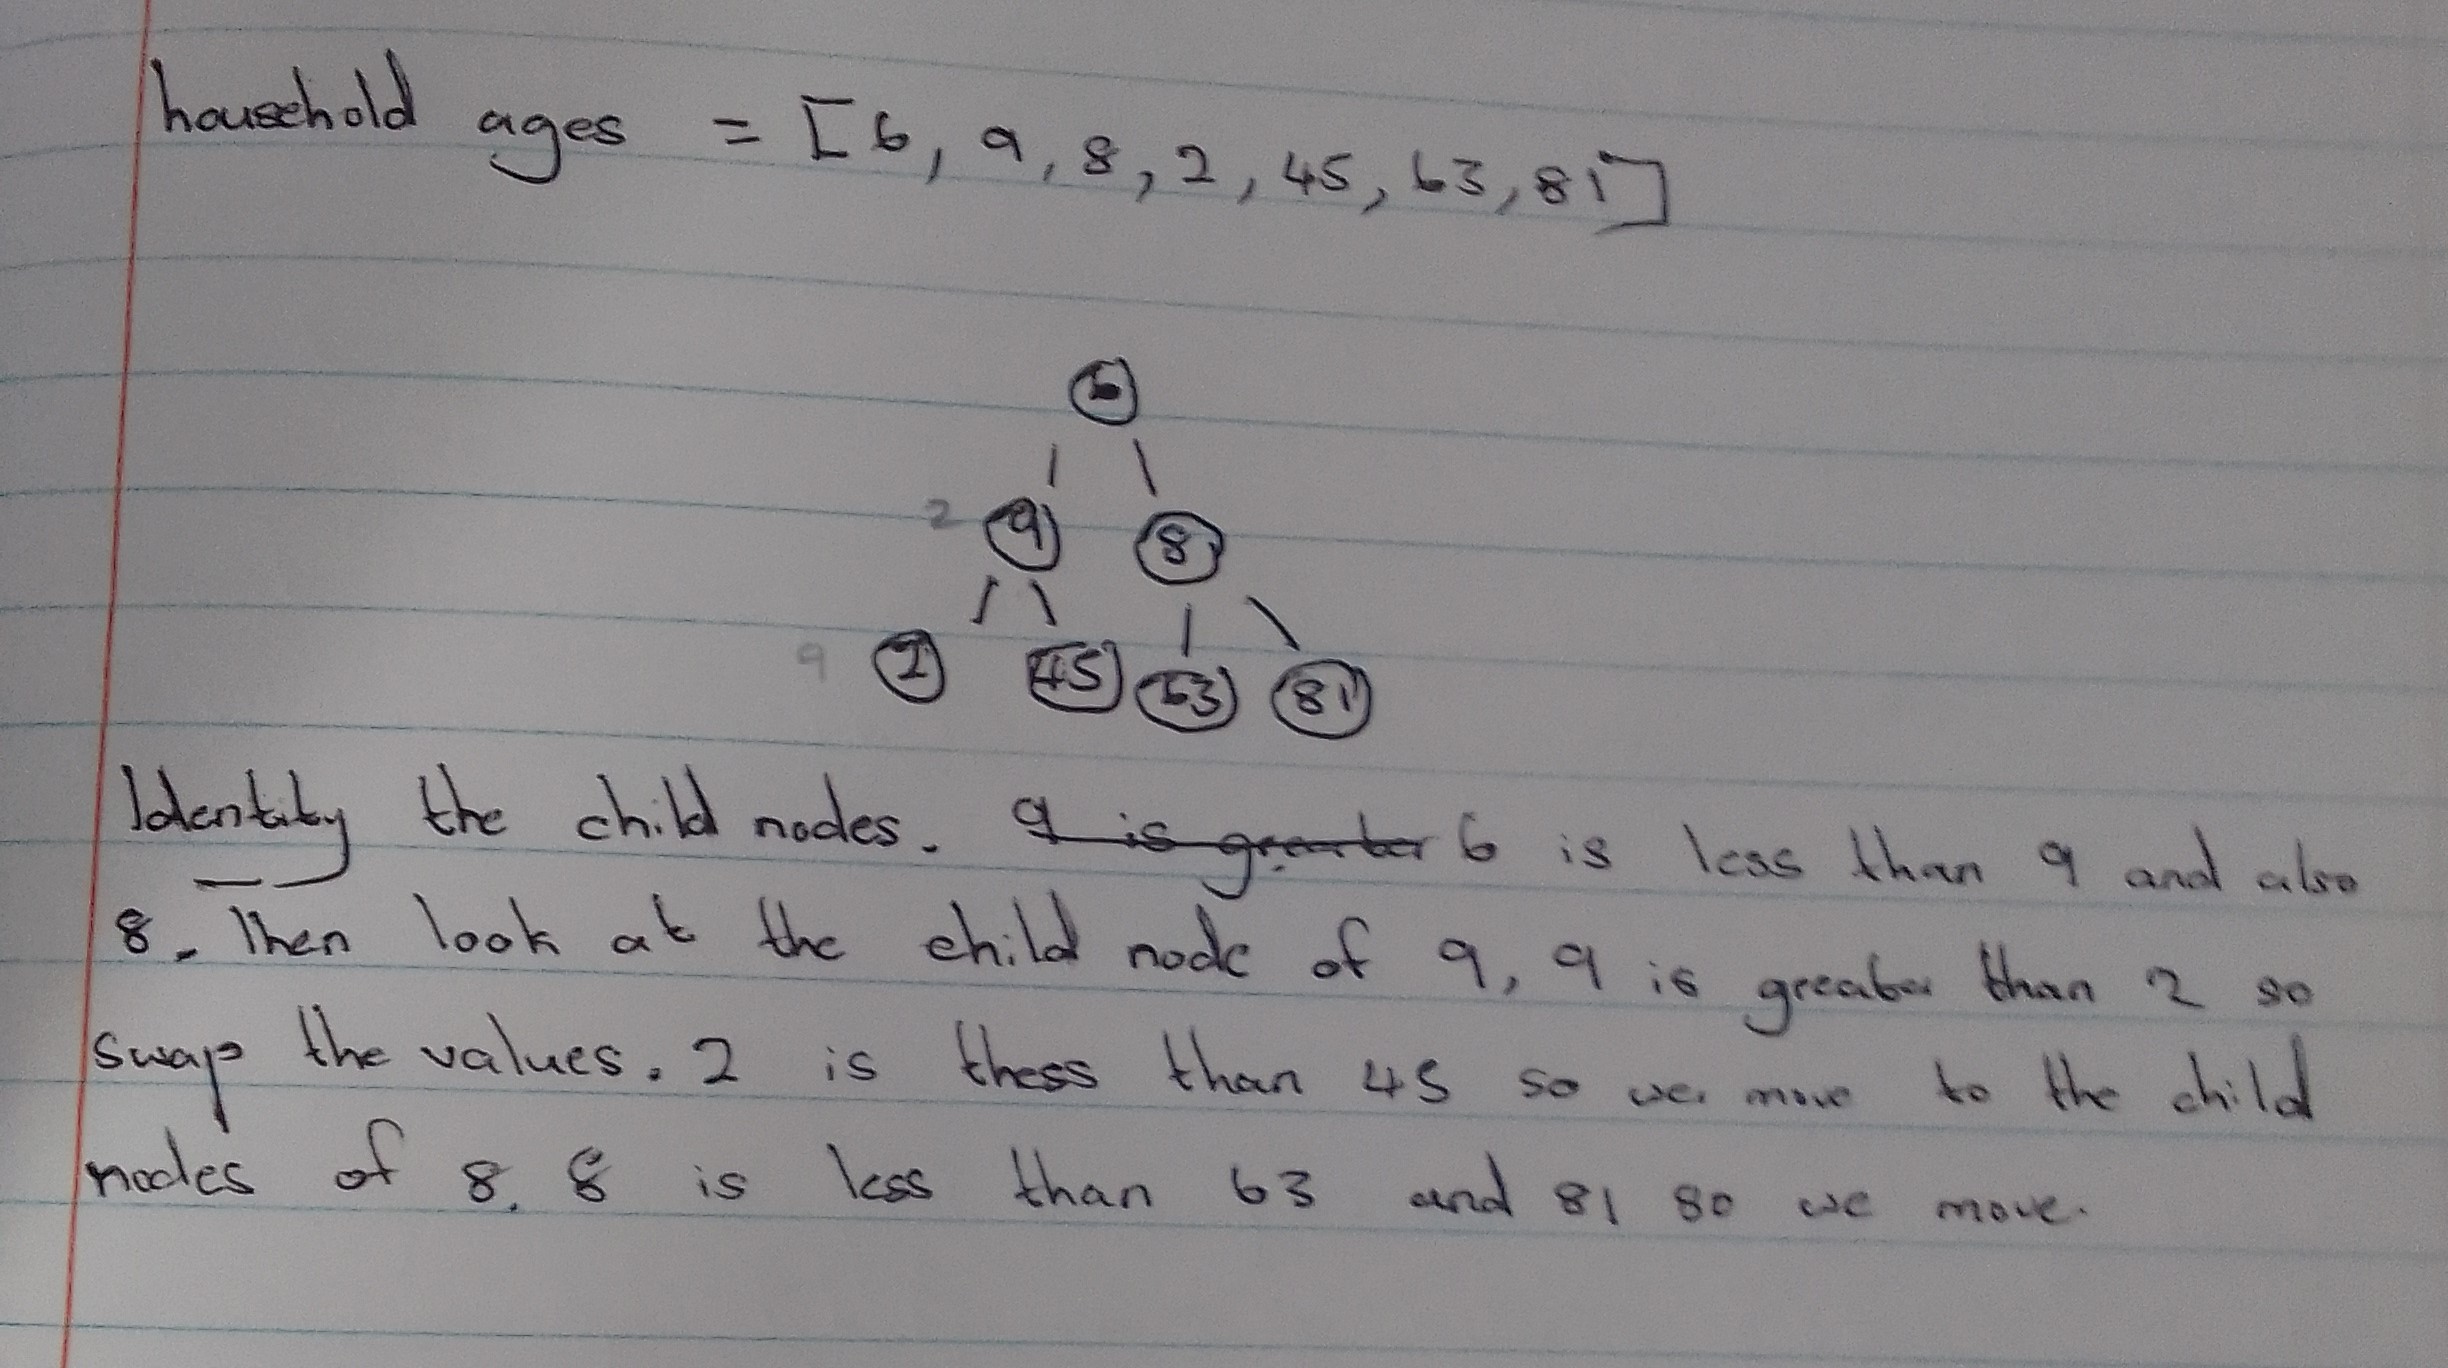 household ages = [6, 9, 8, 2, 45, 63, 81]
6
2 9 8
9 2 45 63 81
Identity the child nodes. 9 is greater 6 is less than 9 and also
8. Then look at the child node of 9, 9 is greater than 2 so
swap the values. 2 is thess than 45 so we move to the child
nodes of 8. 8 is less than 63 and 81 so we move.